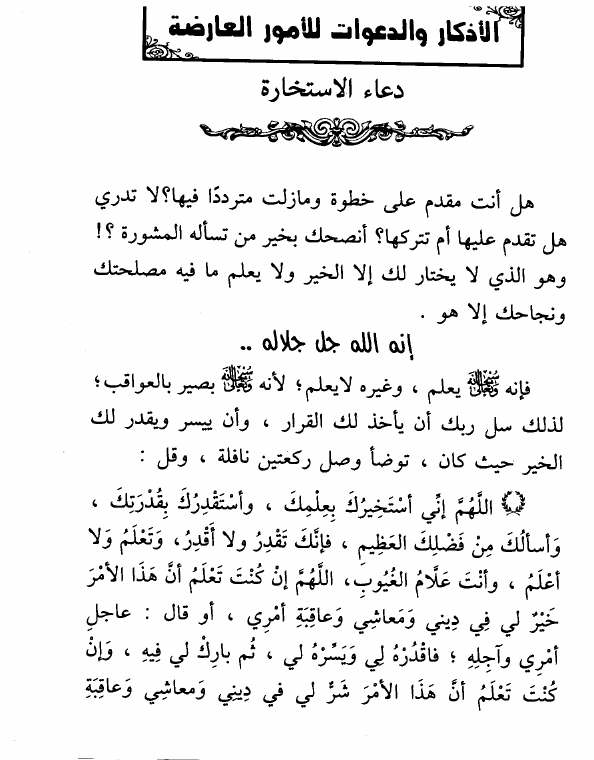 الأذكار والدعوات للأمور العارضة
دعاء الاستخارة
هل أنت مقدم على خطوة ومازلت مترددًا فيها؟لا تدري
هل تقدم عليها أم تتركها؟ أنصحك بخير من تسأله المشورة ؟!
وهو الذي لا يختار لك إلا الخير ولا يعلم ما فيه مصلحتك
ونجاحك إلا هو .
إنه الله جل جلاله ..
فإنه ﷾ يعلم ، وغيره لايعلم؛ لأنه ﷾ بصير بالعواقب؛
لذلك سل ربك أن يأخذ لك القرار ، وأن ييسر ويقدر لك
الخير حيث كان ، توضأ وصل ركعتين نافلة ، وقل :
اللَّهُمَّ إنِّي أسْتَخِيرُكَ بِعِلْمِكَ ، وأسْتَقْدِرُكَ بِقُدْرَتِكَ ،
وَأسألُكَ مِنْ فَضْلِكَ العَظِيمِ ، فإنَّكَ تَقْدِرُ ولا أَقْدِرُ، وَتَعْلَمُ وَلا
أعْلَمُ ، وأنْتَ عَلَّامُ الغُيُوبِ، اللَّهُمَّ إنْ كُنْتَ تَعْلَمُ أنَّ هَذَا الأمْرَ
خَيْرٌ لي فِي دِيني وَمَعاشِي وَعاقِبَةِ أمْرِي ، أو قال : عاجلِ
أمْرِي وآجِلِهِ ؛ فاقْدُرْهُ لِي وَيَسِّرْهُ لي ، ثُم بارِكْ لي فِيهِ ، وَإنْ
كُنْتَ تَعْلَمُ أنَّ هَذَا الأمْرَ شَرٌّ لي في دِينِي وَمعاشِي وَعاقِبَةِ